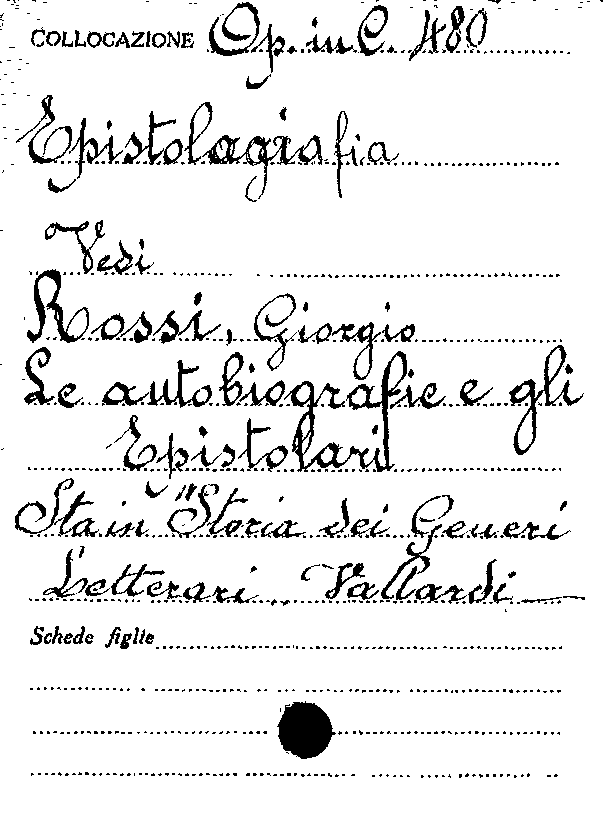 COLLOCAZIONE Op. in C. 480
Epistolografia
Vedi
Rossi, Giorgio
Le autobiografie e gli
Epistolari
Sta in "Storia dei Generi
Letterari Vallardi
Schede figlie